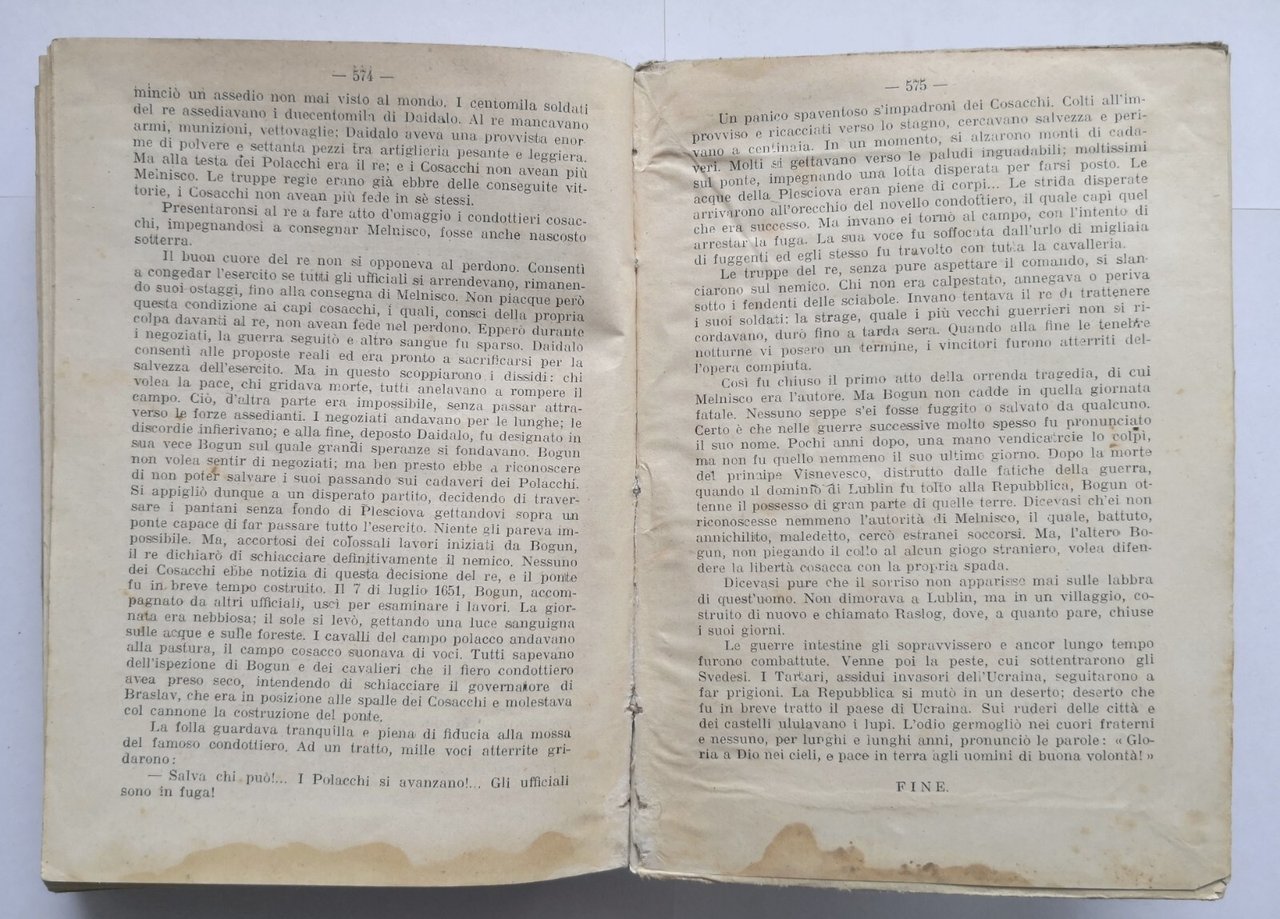 — 574 —
minciò un assedio non mai visto al mondo. I centomila soldati
del re assediavano i duecentomila di Daidalo. Al re mancavano
armi, munizioni, vettovaglie; Daidalo aveva una provvista enor-
me di polvere e settanta pezzi tra artiglieria pesante e leggiera.
Ma alla testa dei Polacchi era il re; e i Cosacchi non avean più
Melnisco. Le truppe regie erano già ebbre delle conseguite vit-
torie, i Cosacchi non avean più fede in sè stessi.
Presentaronsi al re a fare atto d'omaggio i condottieri cosac-
chi, impegnandosi a consegnar Melnisco, fosse anche nascosto
sotterra.
Il buon cuore del re non si opponeva al perdono. Consentì
a congedar l'esercito se tutti gli ufficiali si arrendevano, rimanen-
do suoi ostaggi, fino alla consegna di Melnisco. Non piacque però
questa condizione ai capi cosacchi, i quali, consci della propria
colpa davanti al re, non avean fede nel perdono. Epperò durante
i negoziati, la guerra seguitò e altro sangue fu sparso. Daidalo
consentì alle proposte reali ed era pronto a sacrificarsi per la
salvezza dell'esercito. Ma in questo scoppiarono i dissidi: chi
volea la pace, chi gridava morte, tutti anelavano a rompere il
campo. Ciò, d'altra parte era impossibile, senza passar attra-
verso le forze assedianti. I negoziati andavano per le lunghe; le
discordie infierivano; e alla fine, deposto Daidalo, fu designato in
sua vece Bogun sul quale grandi speranze si fondavano. Bogun
non volea sentir di negoziati; ma ben presto ebbe a riconoscere
di non poter salvare i suoi passando sui cadaveri dei Polacchi.
Si appigliò dunque a un disperato partito, decidendo di traver-
sare i pantani senza fondo di Plesciova gettandovi sopra un
ponte capace di far passare tutto l'esercito. Niente gli pareva im-
possibile. Ma, accortosi dei colossali lavori iniziati da Bogun,
il re dichiarò di schiacciare definitivamente il nemico. Nessuno
dei Cosacchi ebbe notizia di questa decisione del re, e il ponte
fu in breve tempo costruito. Il 7 di luglio 1651, Bogun, accom-
pagnato da altri ufficiali, uscì per esaminare i lavori. La gior-
nata era nebbiosa; il sole si levò, gettando una luce sanguigna
sulle acque e sulle foreste. I cavalli del campo polacco andavano
alla pastura, il campo cosacco suonava di voci. Tutti sapevano
dell'ispezione di Bogun e dei cavalieri che il fiero condottiero
avea preso seco, intendendo di schiacciare il governatore di
Braslav, che era in posizione alle spalle dei Cosacchi e molestava
col cannone la costruzione del ponte.
La folla guardava tranquilla e piena di fiducia alla mossa
del famoso condottiero. Ad un tratto, mille voci atterrite gri-
darono:
— Salva chi può!... I Polacchi si avanzano!... Gli ufficiali
sono in fuga!
— 575 —
Un panico spaventoso s'impadronì dei Cosacchi. Colti all'im-
provviso e ricacciati verso lo stagno, cercavano salvezza e peri-
vano a centinaia. In un momento, si alzarono monti di cada-
veri. Molti si gettavano verso le paludi inguadabili; moltissimi
sul ponte, impegnando una lotta disperata per farsi posto. Le
acque della Plesciova eran piene di corpi... Le strida disperate
arrivarono all'orecchio del novello condottiero, il quale capì quel
che era successo. Ma invano ei tornò al campo, con l'intento di
arrestar la fuga. La sua voce fu soffocata dall'urlo di migliaia
di fuggenti ed egli stesso fu travolto con tutta la cavalleria.
Le truppe del re, senza pure aspettare il comando, si slan-
ciarono sul nemico. Chi non era calpestato, annegava o periva
sotto i fendenti delle sciabole. Invano tentava il re di trattenere
i suoi soldati: la strage, quale i più vecchi guerrieri non si ri-
cordavano, durò fino a tarda sera. Quando alla fine le tenebre
notturne vi posero un termine, i vincitori furono atterriti del-
l'opera compiuta.
Così fu chiuso il primo atto della orrenda tragedia, di cui
Melnisco era l'autore. Ma Bogun non cadde in quella giornata
fatale. Nessuno seppe s'ei fosse fuggito o salvato da qualcuno.
Certo è che nelle guerre successive molto spesso fu pronunciato
il suo nome. Pochi anni dopo, una mano vendicatrcie lo colpì,
ma non fu quello nemmeno il suo ultimo giorno. Dopo la morte
del principe Visnevesco, distrutto dalle fatiche della guerra,
quando il dominio di Lublin fu tolto alla Repubblica, Bogun ot-
tenne il possesso di gran parte di quelle terre. Dicevasi ch'ei non
riconoscesse nemmeno l'autorità di Melnisco, il quale, battuto,
annichilito, maledetto, cercò estranei soccorsi. Ma, l'altero Bo-
gun, non piegando il collo al alcun giogo straniero, volea difen-
dere la libertà cosacca con la propria spada.
Dicevasi pure che il sorriso non apparisse mai sulle labbra
di quest'uomo. Non dimorava a Lublin, ma in un villaggio, co-
struito di nuovo e chiamato Raslog, dove, a quanto pare, chiuse
i suoi giorni.
Le guerre intestine gli sopravvissero e ancor lungo tempo
furono combattute. Venne poi la peste, cui sottentrarono gli
Svedesi. I Tartari, assidui invasori dell'Ucraina, seguitarono a
far prigioni. La Repubblica si mutò in un deserto; deserto che
fu in breve tratto il paese di Ucraina. Sui ruderi delle città e
dei castelli ululavano i lupi. L'odio germogliò nei cuori fraterni
e nessuno, per lunghi e lunghi anni, pronunciò le parole: « Glo-
ria a Dio nei cieli, e pace in terra agli uomini di buona volontà! »
FINE.